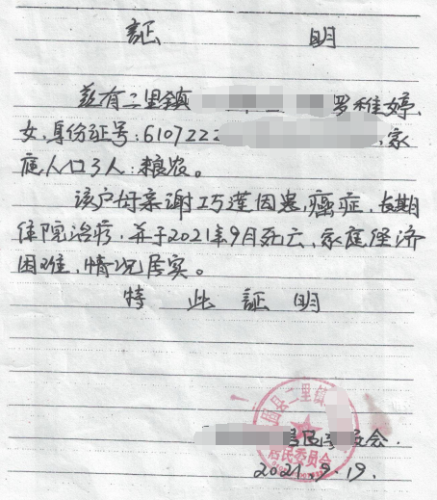 証 明
兹有二里鎮 罗稚婷,
女,身份证号:610722 ,家
庭人口3人:粮农。
该户母亲谢巧莲因患,癌症,长期
住院治疗,并于2021年9月死亡,家庭经济
困难,情况居实。
特此証明
二里镇
居民委员会
委会.
2021.9.19.